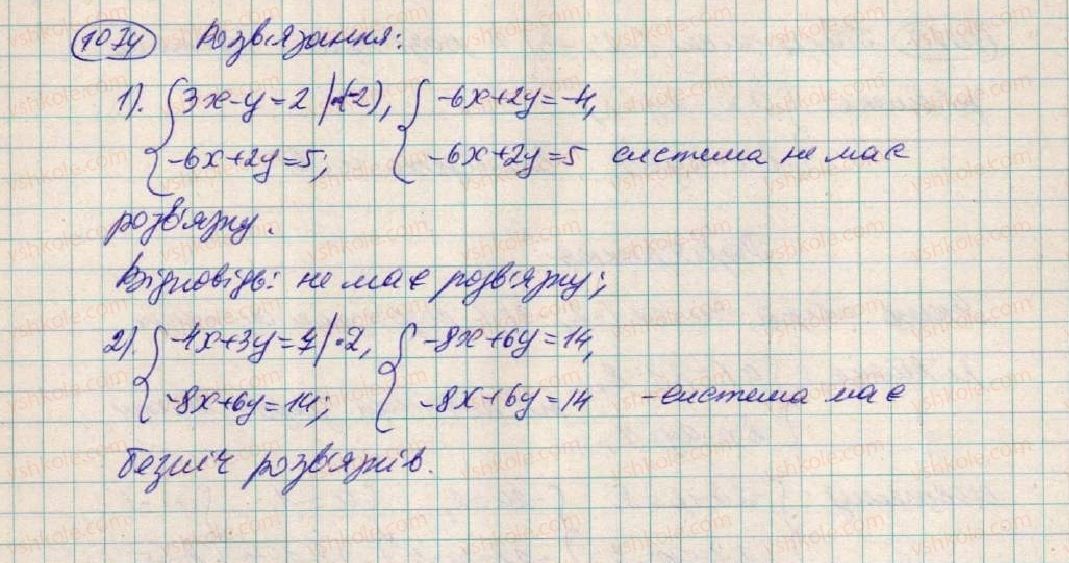 1074 Розв'язання:
1). { 3x-y=2 |·(-2), { -6x+2y=-4,
-6x+2y=5; -6x+2y=5 система не має
розв'язку.
Відповідь: не має розв'язку;
2). { -4x+3y=7 |·2, { -8x+6y=14,
-8x+6y=14; -8x+6y=14 -система має
безліч розв'язків.